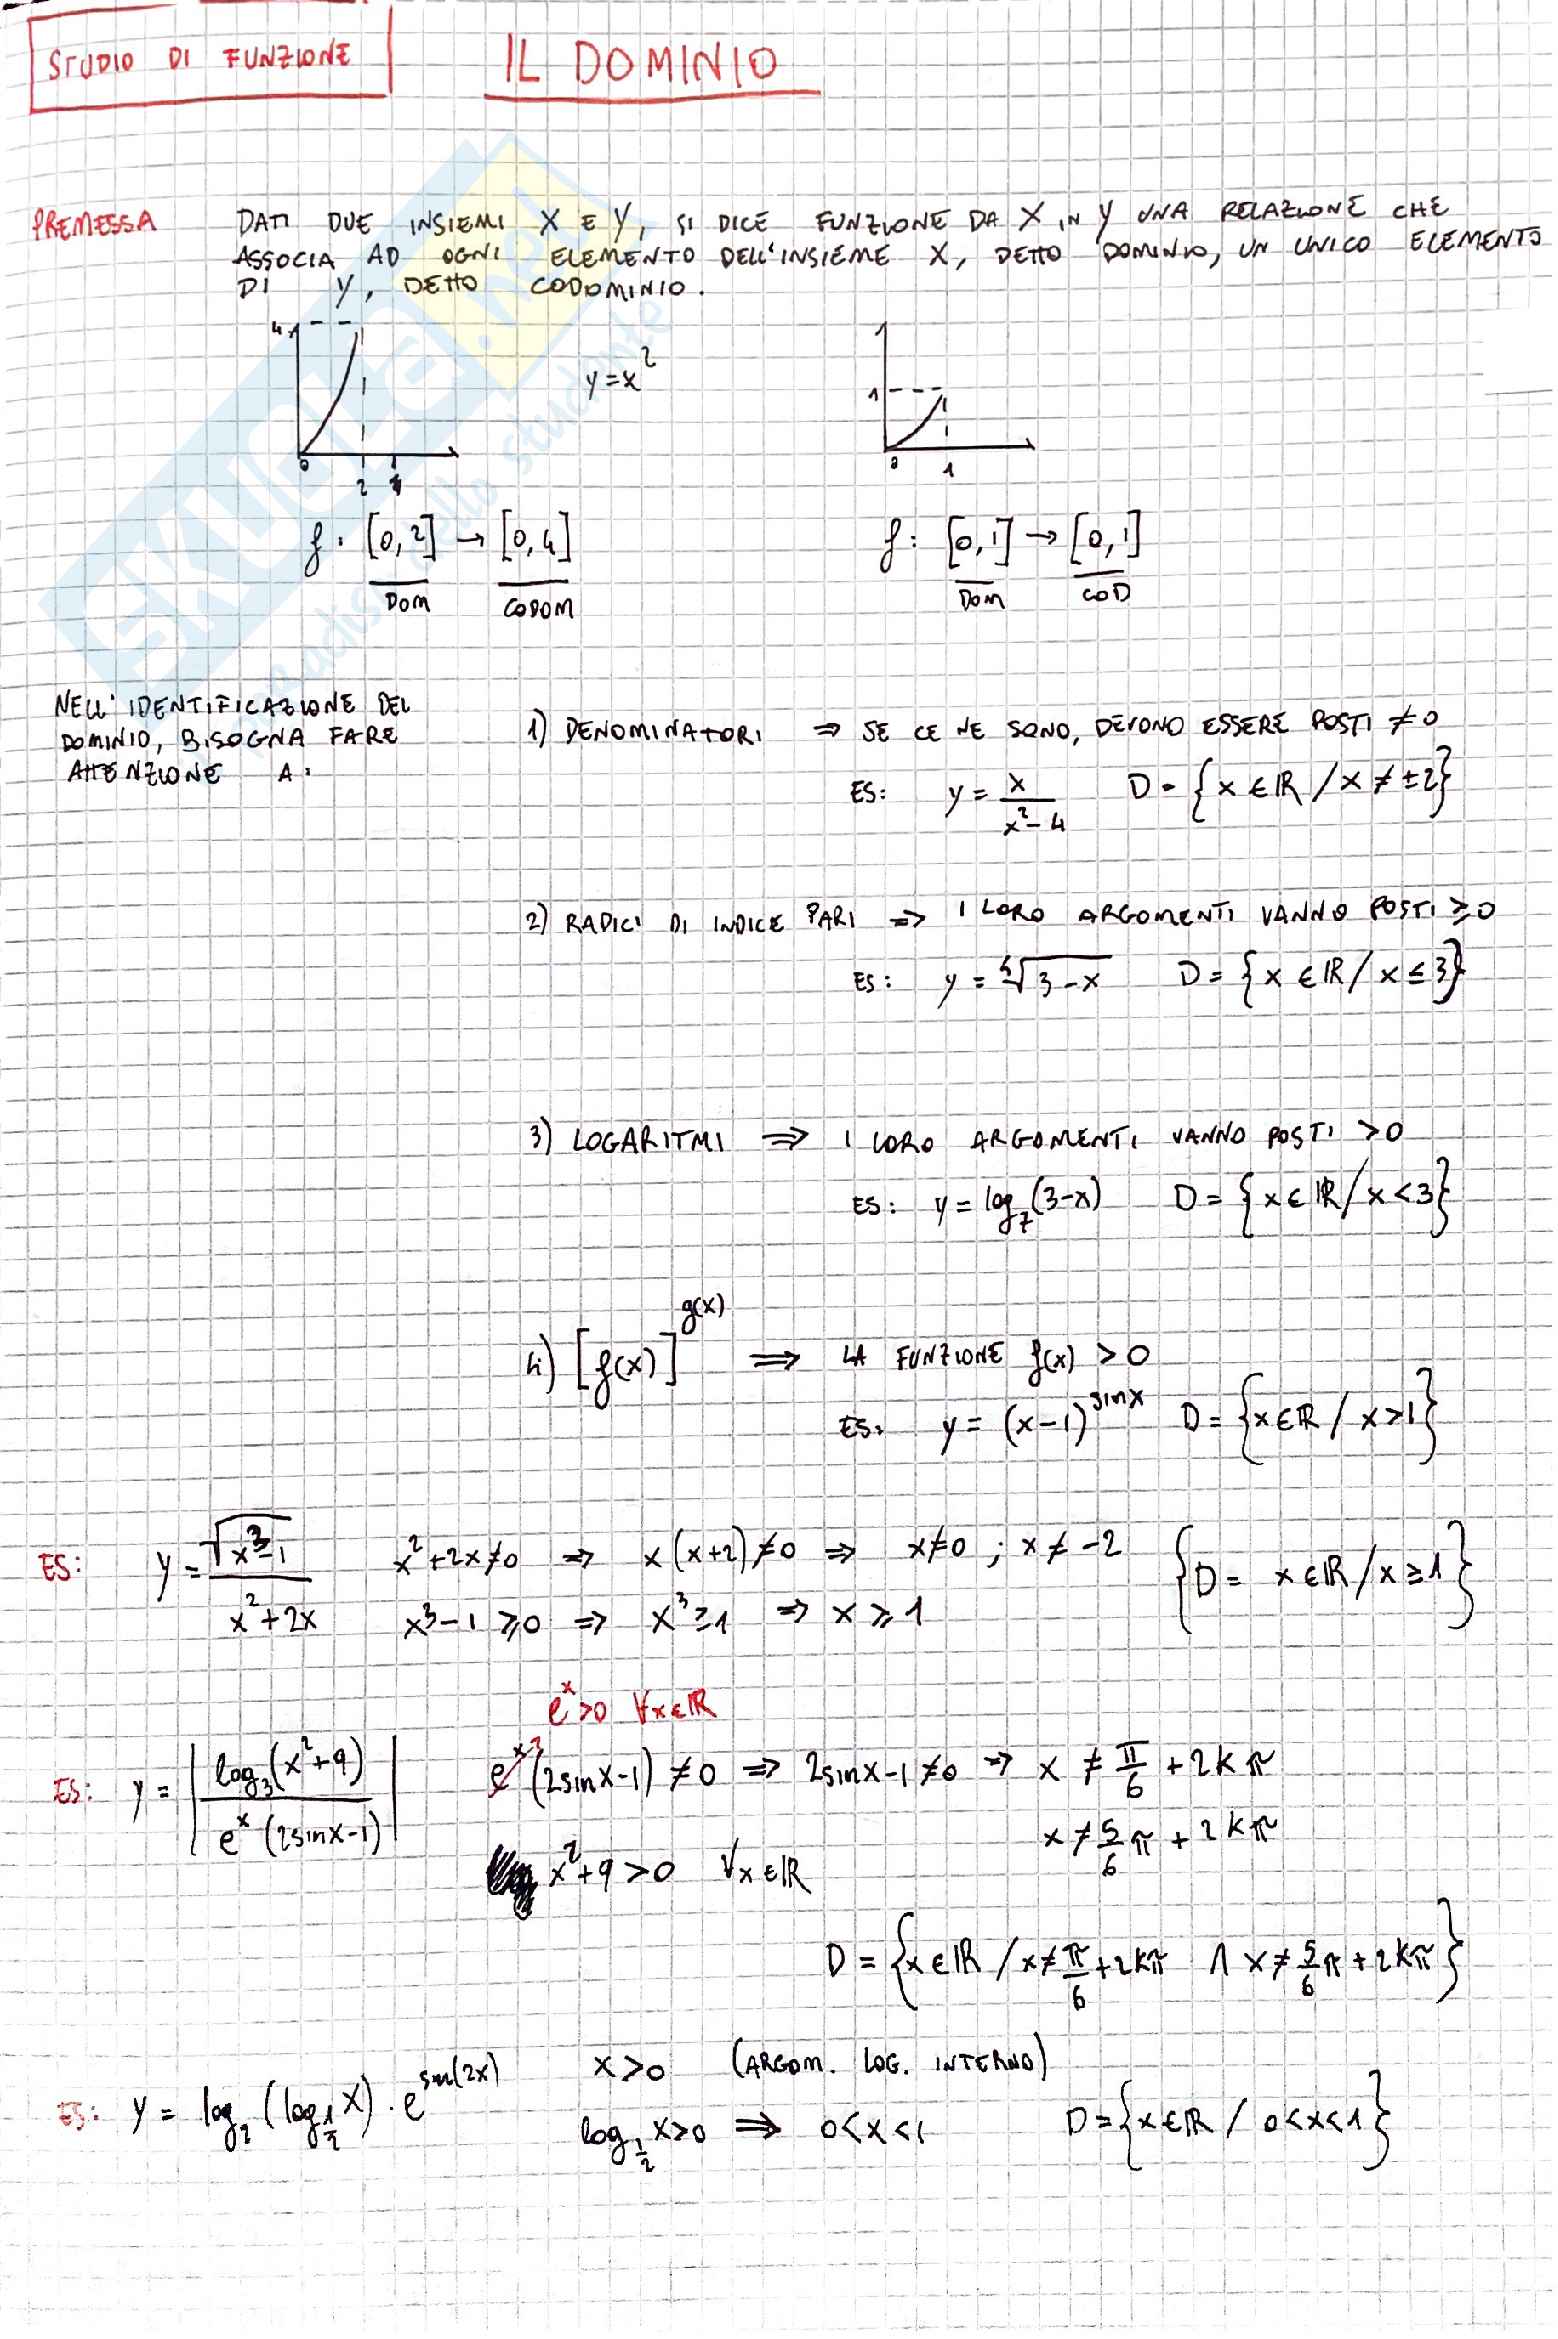 STUDIO DI FUNZIONE
IL DOMINIO
PREMESSA
DATI DUE INSIEMI X E Y, SI DICE FUNZIONE DA X IN Y UNA RELAZIONE CHE
ASSOCIA AD OGNI ELEMENTO DELL'INSIEME X, DETTO DOMINIO, UN UNICO ELEMENTO
DI Y, DETTO CODOMINIO.
4
0 2
y=x²
1
0 1
f: [0,2] → [0,4]
DOM CODOM
f: [0,1] → [0,1]
DOM COD
SKUOLA.net
paradiso dello studente
NELL'IDENTIFICAZIONE DEL
DOMINIO, BISOGNA FARE
ATTENZIONE A:
1) DENOMINATORI ⇒ SE CE NE SONO, DEVONO ESSERE POSTI ≠0
ES: y = x/(x²-4) D = {x ∈ ℝ / x ≠ ±2}
2) RADICI DI INDICE PARI ⇒ I LORO ARGOMENTI VANNO POSTI ≥0
ES: y = ⁴√(3-x) D = {x ∈ ℝ / x ≤ 3}
3) LOGARITMI ⇒ I LORO ARGOMENTI VANNO POSTI >0
ES: y = log₇(3-x) D = {x ∈ ℝ / x<3}
4) [f(x)]^g(x) ⇒ LA FUNZIONE f(x) > 0
ES: y = (x-1)^sinx D = {x∈ℝ / x>1}
ES: y = √(x³-1)/(x²+2x) x²+2x≠0 ⇒ x(x+2)≠0 ⇒ x≠0 ; x ≠ -2
x³-1 ≥0 ⇒ x³≥1 ⇒ x ≥ 1
{D = x∈ℝ / x ≥ 1}
e^x>0 ∀x∈ℝ
ES: y = |log₃(x²+9)/(e^x(2sinx-1))| e^x(2sinx-1) ≠0 ⇒ 2sinx-1≠0 ⇒ x ≠ π/6 + 2kπ
x ≠ 5/6 π + 2kπ
x²+9 >0 ∀x∈ℝ
D = {x∈ℝ / x≠π/6+2kπ ∧ x≠5/6 π + 2kπ}
ES: y = log₂(log_1/2 x) · e^sin(2x) x>0 (ARGOM. LOG. INTERNO)
log_1/2 x>0 ⇒ 0<x<1 D={x∈ℝ / 0<x<1}